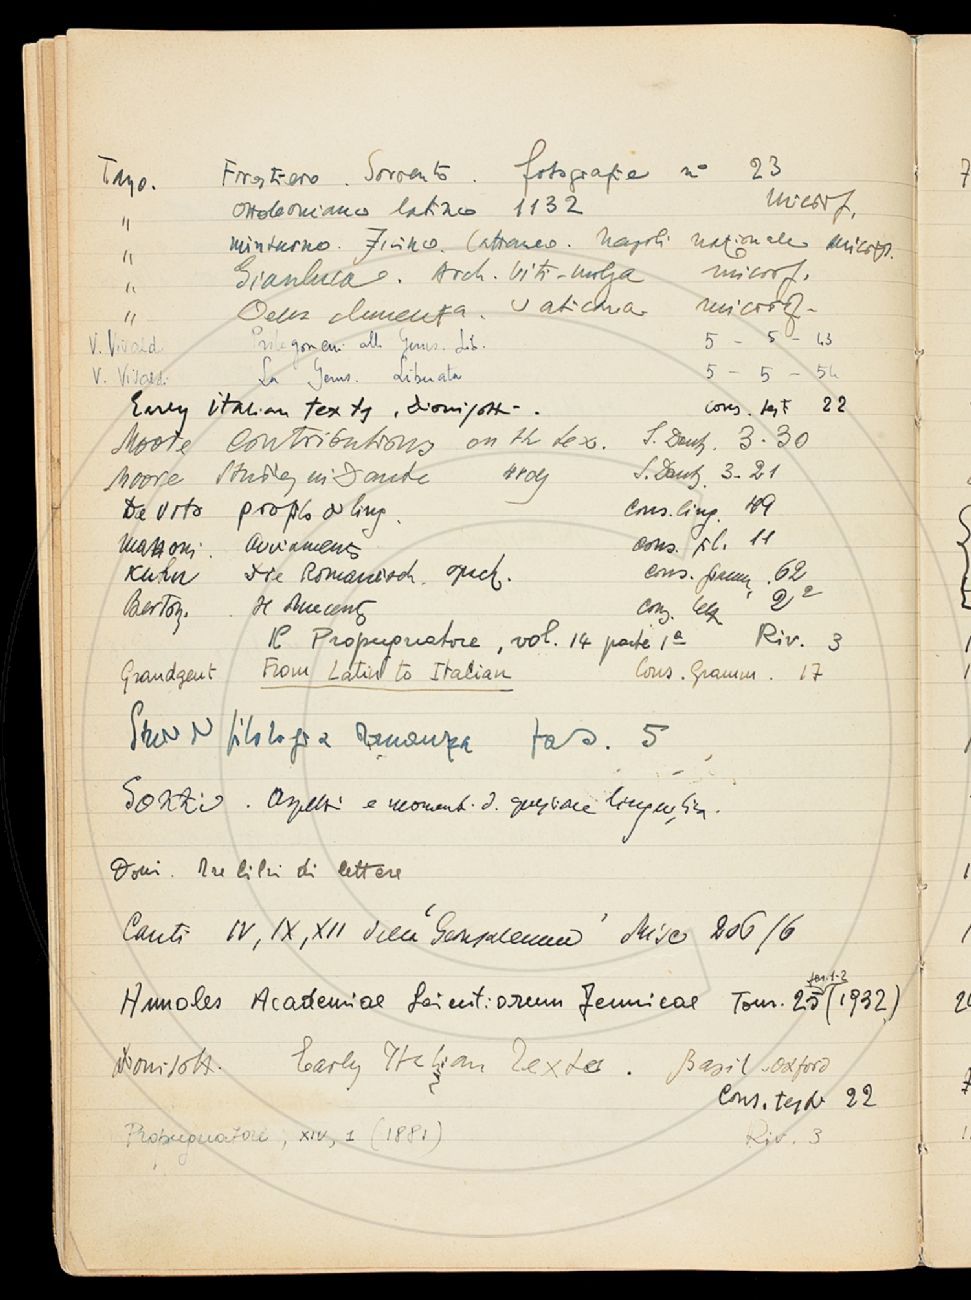 Tasso. Forestiero. Sorrento. fotografie n° 23
" Ottoboniano latino 1132 microf.
" Minturno. Ficino. Cattaneo. Napoli nazionale microf.
" Gianluca. Arch. Viti-Molza microf.
" clemenza. Vaticana microf.
V. Vivaldi Prolegomeni alla Gerus. Lib. 5 - 5 - 43
V. Vivaldi La Gerus. Liberata 5 - 5 - 54
Early italian texts, Dionisotti. cons. test 22
Moore Contributions on th tex. S. Dant. 3-30
Moore Studies in Dante S. Dant. 3-21
Devoto profilo ling. cons. ling. 49
Mazzoni. Avviamento cons. fil. 11
Kuhn Die Romanisch. sprach. cons. gramm. 62
Bertoni. Il Duecento cons. lett 2
Il Propugnatore, vol. 14 parte 1ª Riv. 3
Grandgent From Latin to Italian Cons. Gramm. 17
Studi di filologia romanza fas. 5
Sozzi. Aspetti e momenti d. questione linguistica.
Doni. Tre libri di lettere
Canti IV, IX, XII della "Gerusalemme" Misc 206/6
Annales Academiae Scientiarum Fennicae Tom. 25 (1932)
fas. 1-2
Dionisotti. Early Italian Texts. Basil. Oxford
Cons. testi 22
Propugnatore, XIV, 1 (1881) Riv. 3